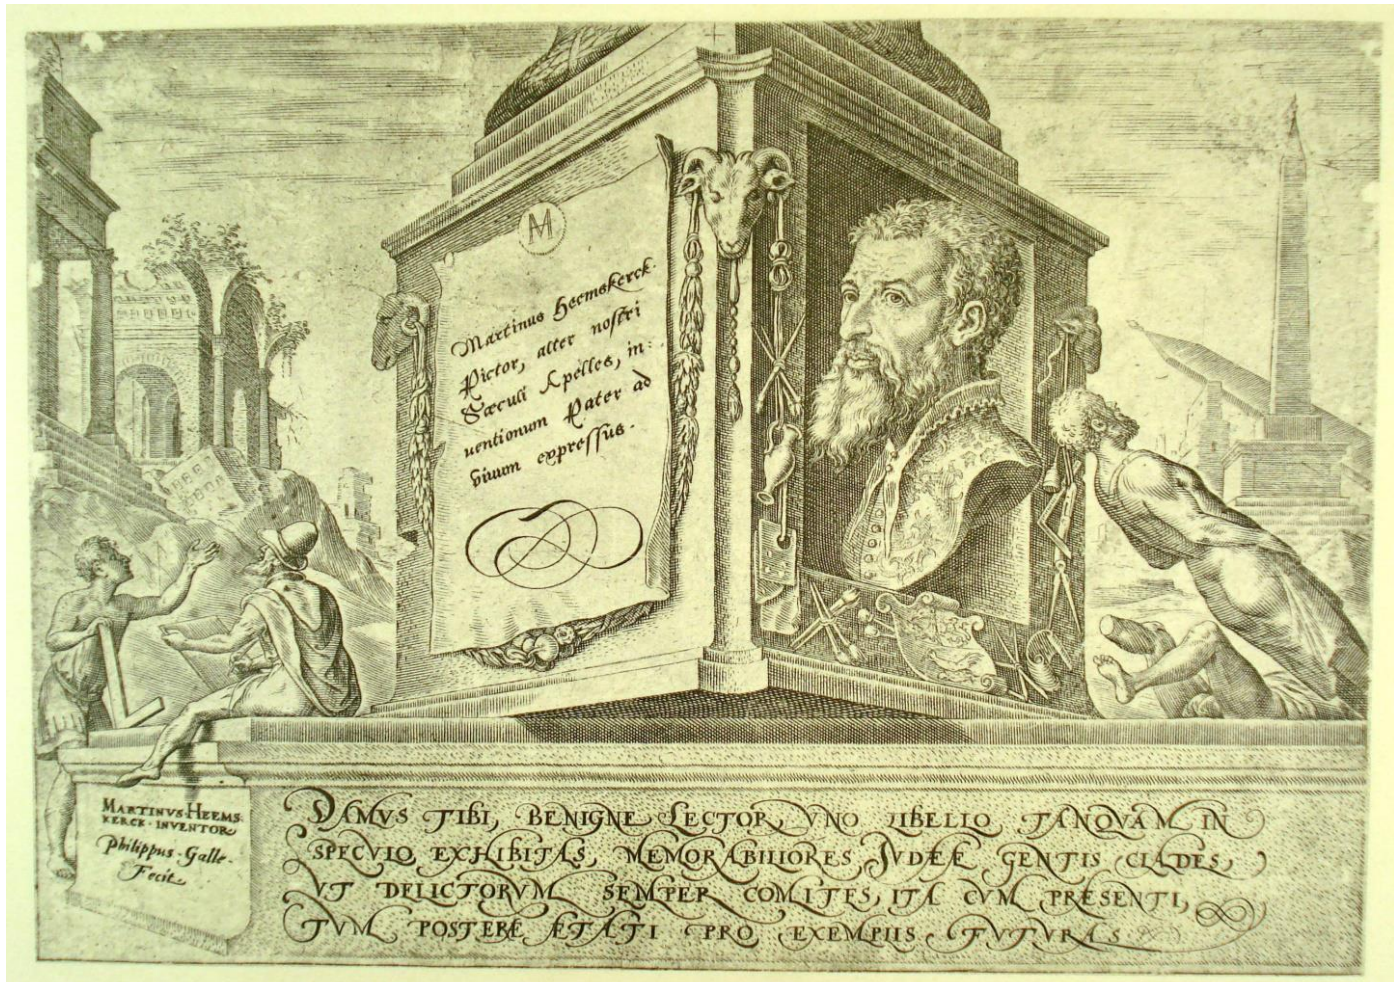 M
Martinus Heemskerck
Pictor, alter nostri
Sæculi Apelles, in:
uentionum Pater ad
viuum expressus.
MARTINVS HEEMS
KERCK INVENTOR
Philippus Galle
Fecit
DAMVS TIBI, BENIGNE LECTOR, VNO LIBELLO TANQVAM IN
SPECVLO EXHIBITAS, MEMORABILIORES IVDEÆ GENTIS CLADES,
VT DELICTORVM SEMPER COMITES, ITA CVM PRÆSENTI,
TVM POSTERÆ ÆTATI PRO EXEMPLIS FVTVRAS